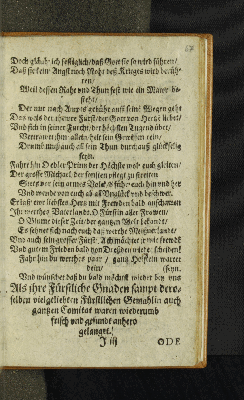 Doch gläub ich festiglich / daß Gott sie so wird führen /
Daß sie kein Angst noch Noht deß Krieges wird berühren /
Weil dessen Raht und Thun fest wie ein Mawr bestehet /
Der nur nach Ampts gebühr auff seine Wegen geht
Das was der thewre Fürst / der Gott von Hertzen liebet /
Und sich in seiner Furcht / der höchsten Tugend übet /
Vertrawet ihm allein / helt sein Gewissen rein /
Drumb muß auch all sein Thun durchauß glückselig seyn.
Fahr hin O edler Printz der Höchste woll euch gleiten /
Der grosse Michael der sonsten pflegt zu streiten
für sein armes Volck / führ euch hin und her
Und wende von euch ab all Unglück und beschwer.
Ihr werthes Vaterland / O Fürstin aller Frawen /
O Blume dieser Zeit der gantzen Welt bekandt /
Es sehnet sich nach euch das werthe Meißnerlande /
Und auch sein grosser Fürst /
Und gute in Frieden bald von Dreßden wieder scheiden
Fahr hin du werthes paar / gantz Holstein wartet dein /
Und wünschet daß du bald möchst wieder bey uns seyn.
Als ihre Fürstliche Gnaden sampt dero-
selben vielgeliebten Fürstlichen Gemahlin auch
gantzen Comitat waren wiederumb
frisch und gesund anhero
gelanget.
J iij
ODE